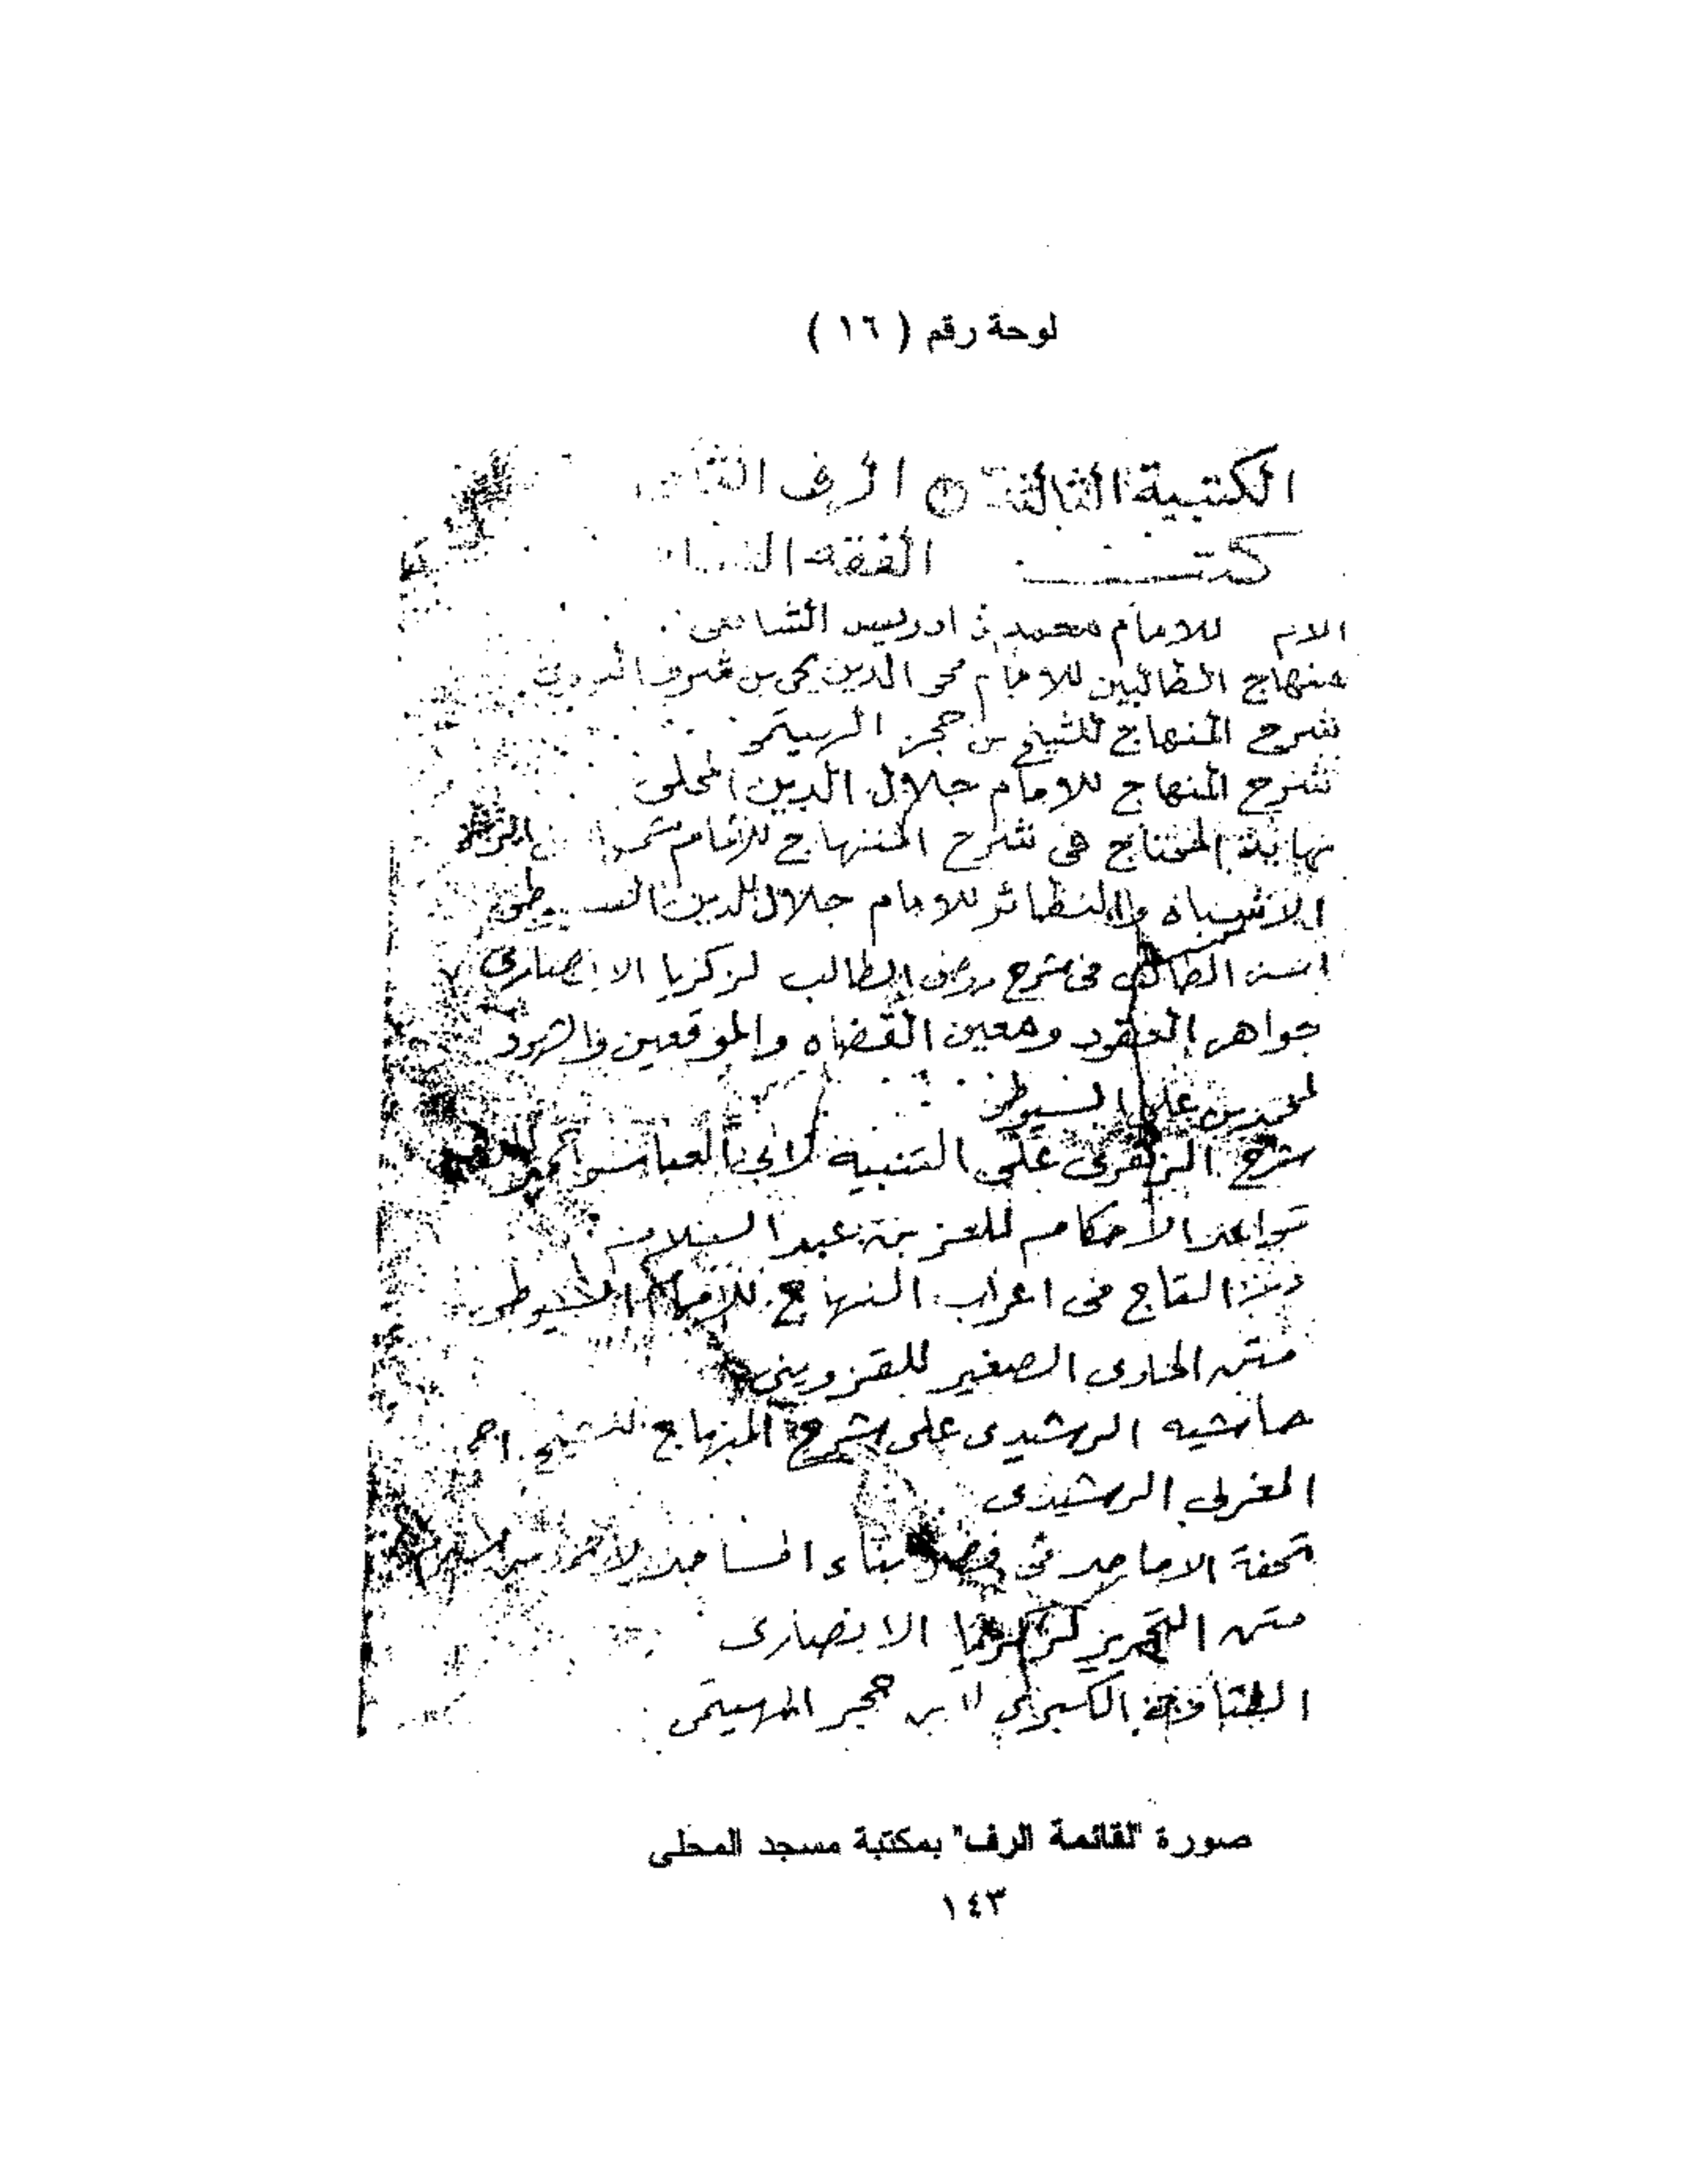 لوحة رقم ( ١٦ )
الكتبية الثالثة الرف
كتب الفقه
الام للامام محمد بن ادريس الشافعى
منهاج الطالبين للامام محى الدين يحى بن شرف النووى
شرح المنهاج للشيخ بن حجر الهيتمى
شرح المنهاج للامام جلال الدين المحلى
نهاية المحتاج فى شرح المنهاج للامام
الاشباه والنظائر للامام جلال الدين السيوطى
اسنى الطالب فى شرح روض الطالب لزكريا الانصارى
جواهر العقود ومعين القضاه والموقعين والشهود
لمحمد بن على السيوطى
شرح على التنبيه لابى العباس
قواعد الأحكام للعز بن عبد السلام
التاج فى اعراب المنهاج للامام السيوطى
متن الحاوى الصغير للقزوينى
حاشيه الرشيدى على شرح المنهاج للشيخ احمد
المغربى الرشيدى
تحفة الاماجد فى بناء المساجد لأحمد بن
متن التحرير لزكريا الانصارى
الكبرى لابن حجر الهيتمى
صورة "لقائمة الرف" بمكتبة مسجد المحلى
١٤٣